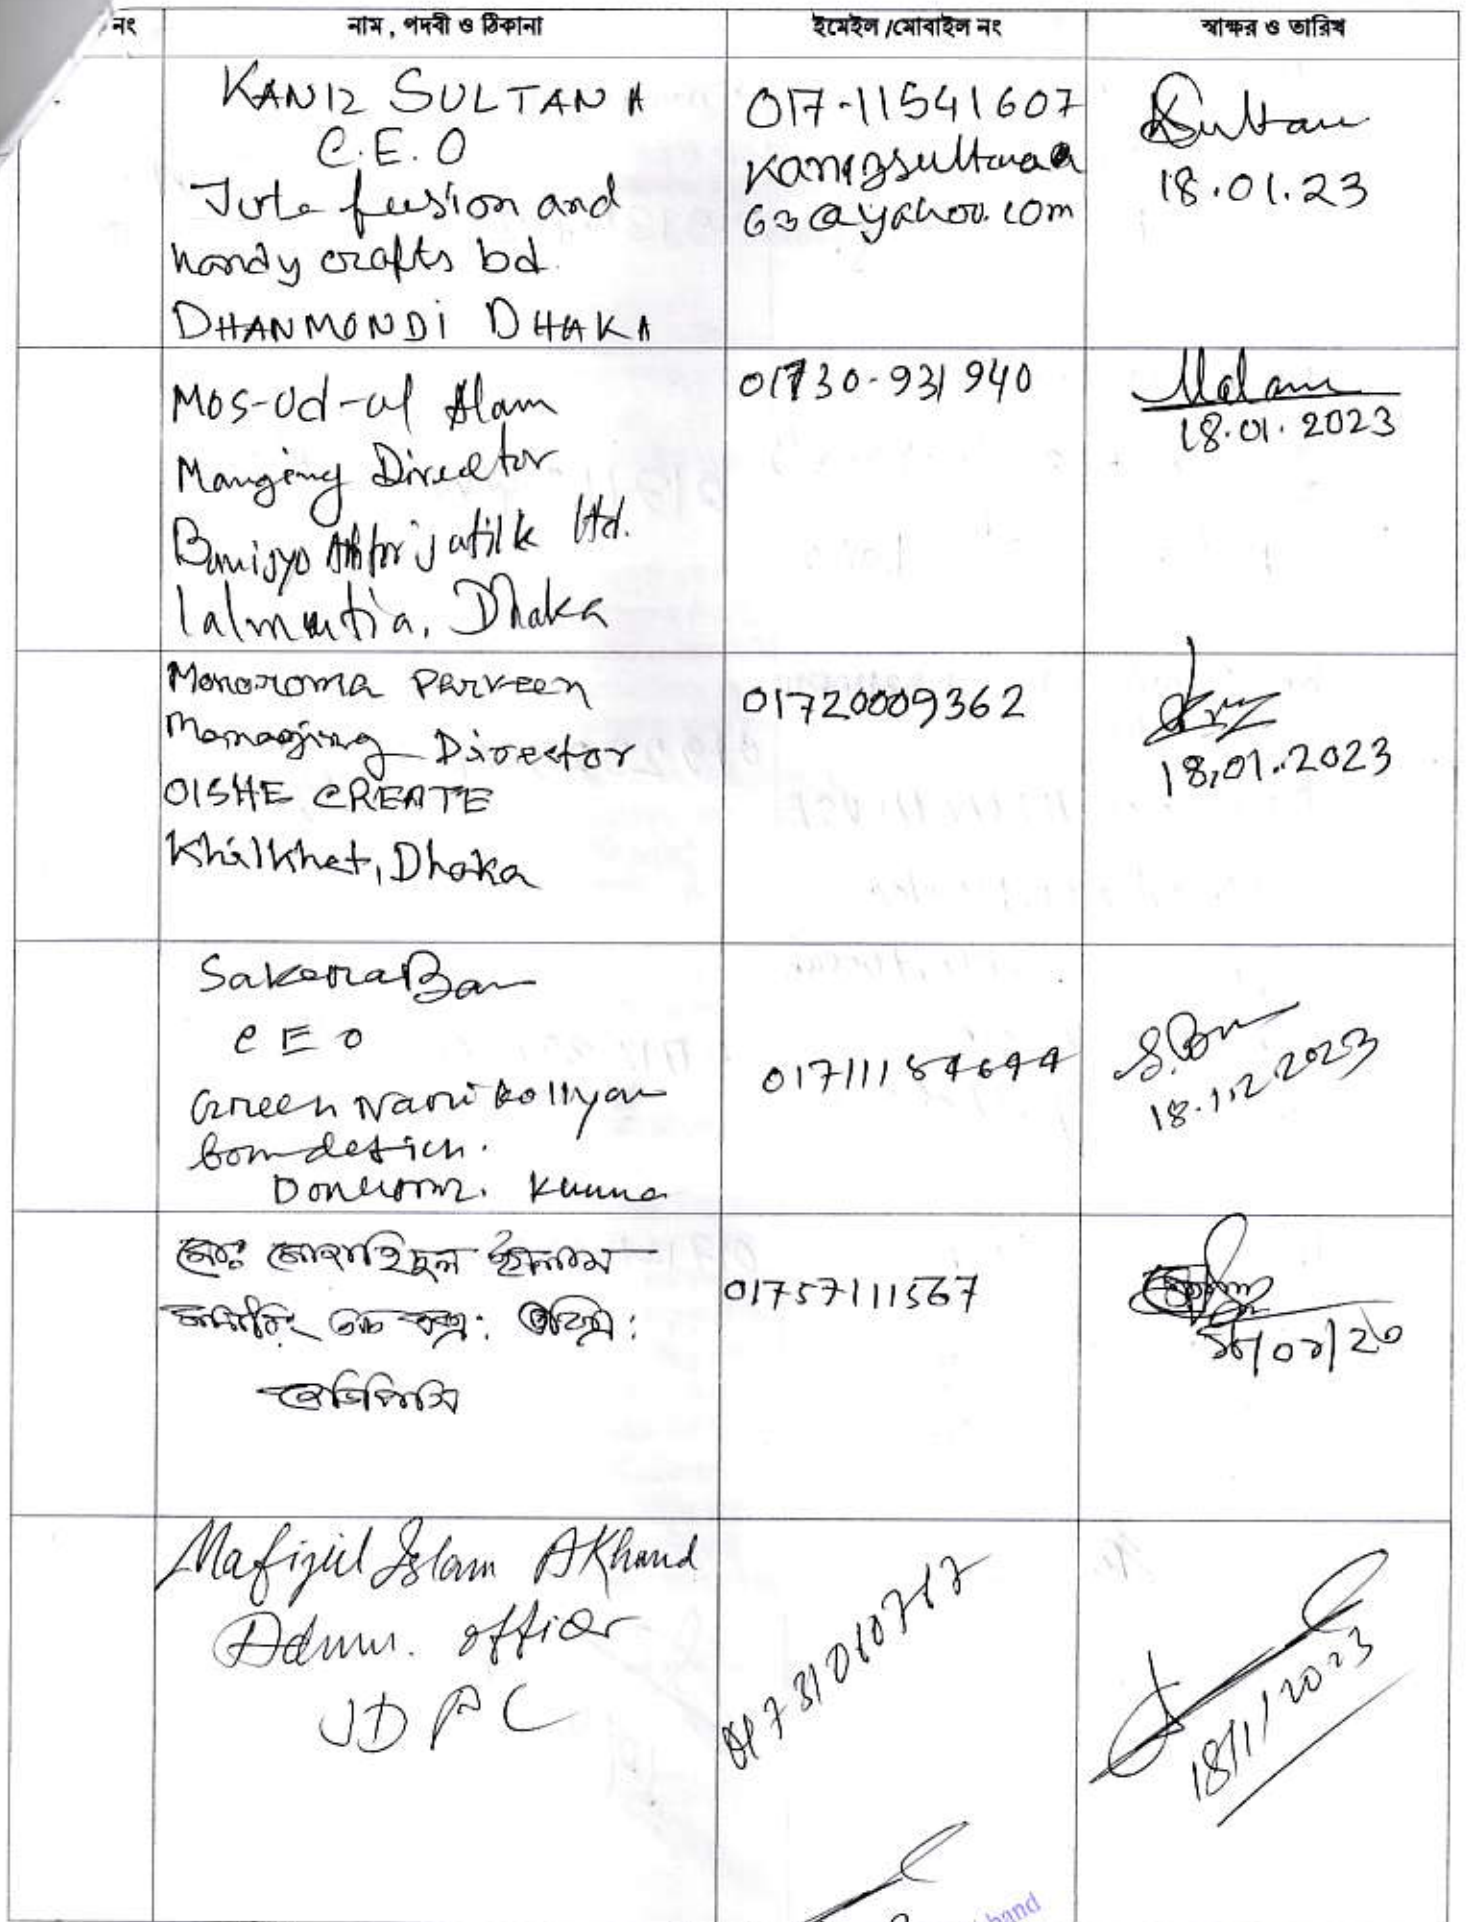 নং নাম, পদবী ও ঠিকানা ইমেইল /মোবাইল নং স্বাক্ষর ও তারিখ
KANIZ SULTANA
C.E.O
Jute fusion and
handy crafts bd.
DHANMONDI DHAKA
017-11541607
kanizsultana
63@yahoo.com
Sultana
18.01.23
Mos-ud-ul Alam
Manging Director
Banijyo Ltd.
lalmatia, Dhaka
01730-931940
MAlam
18.01.2023
Monoroma Parveen
Managing Director
OISHE CREATE
Khilkhet, Dhaka
01720009362
18.01.2023
Sakera Banu
CEO
Green Nari Kollyan
01711184644
S.Banu
2023
মোঃ ইসলাম
জেডিপিসি
01757111567
১৮/০১/২৩
Mafizul Islam Akhand
Admn. officer
JDPC
01731010717
18/1/2023
hand